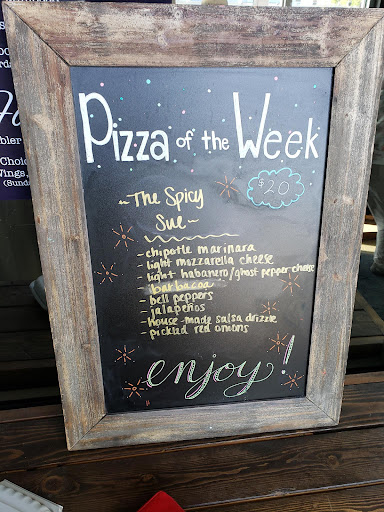 Pizza of the Week
$20
~ The Spicy
Sue ~
- chipotle marinara
- light mozzarella cheese
- light habanero/ghost pepper cheese
- barbacoa
- bell peppers
- jalapeños
- house-made salsa drizzle
- pickled red onions
enjoy!
Choic
Wings,
(Sund